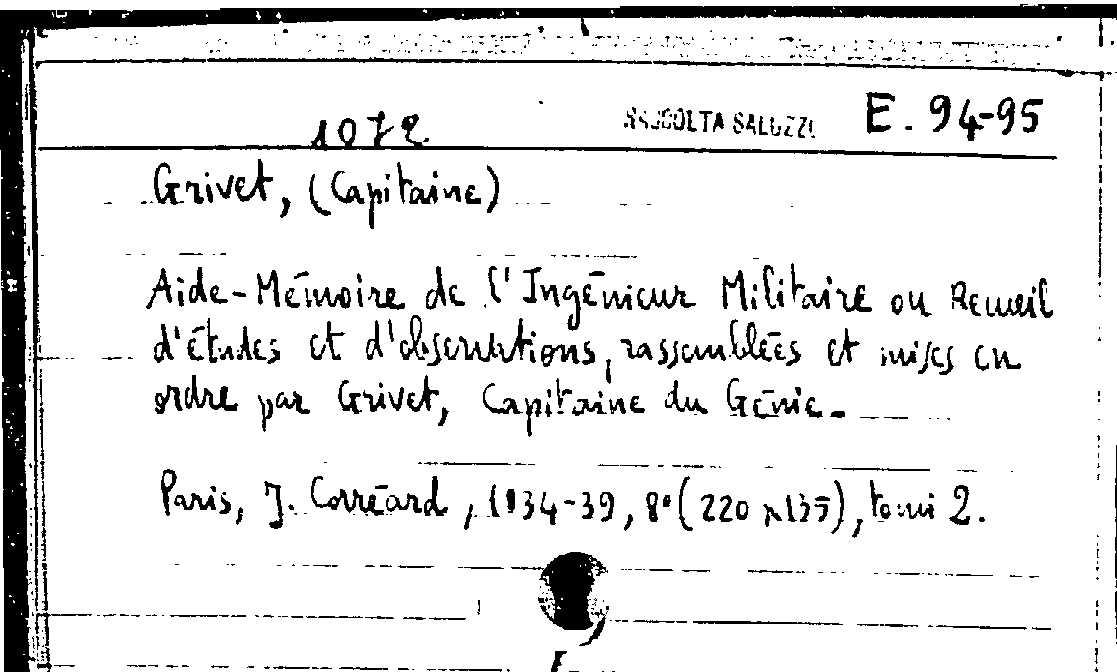 1072 RACCOLTA SALUZZO E. 94-95
Grivet, (Capitaine)
Aide-Mémoire de l'Ingénieur Militaire ou Recueil
d'études et d'observations, rassemblées et mises en
ordre par Grivet, Capitaine du Génie.
Paris, J. Corréard, 1834-39, 8° (220 x 135), tomi 2.